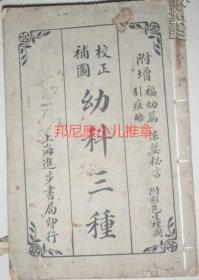 附增
福幼篇
引痘略
校正
補圖
幼科三種
上海進步書局印行
小儿推拿